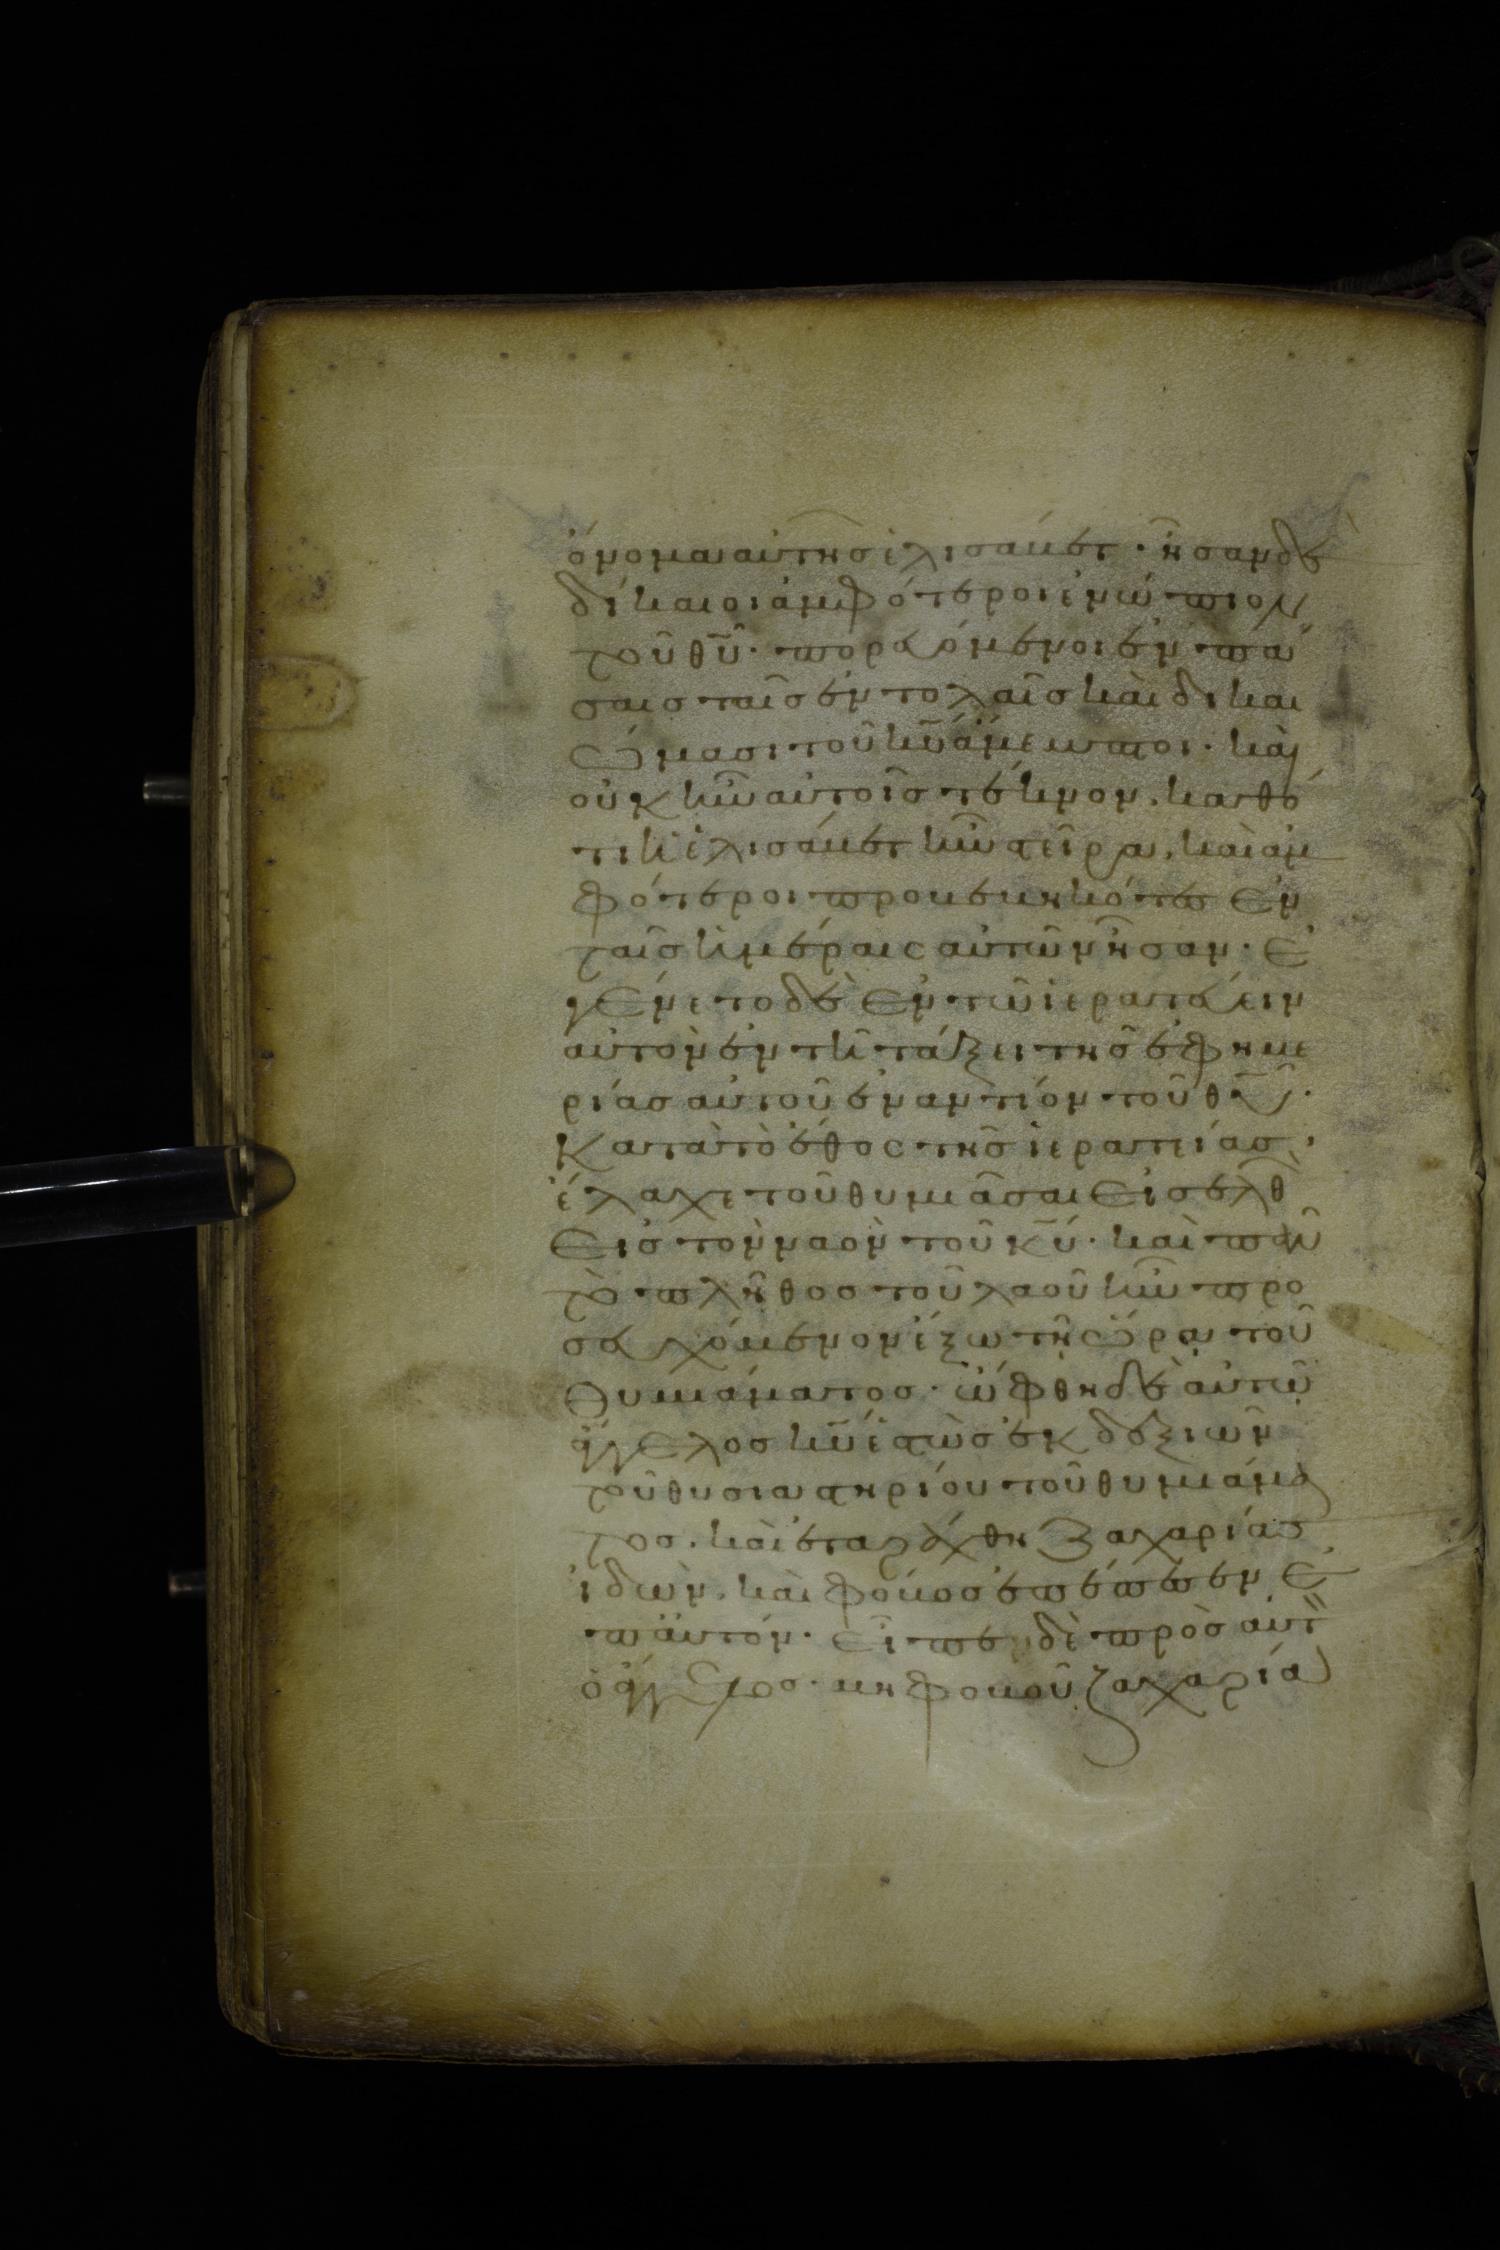 ὄνομα αὐτῆς ἐλισάβετ· ἦσαν δὲ
δίκαιοι ἀμφότεροι ἐνώπιον
τοῦ θῦ· πορευόμενοι ἐν πά
σαις ταῖς ἐντολαῖς καὶ δικαι
ώμασι τοῦ κῦ ἄμεμπτοι· καὶ
οὐκ ἦν αὐτοῖς τέκνον, καθό
τι ἡ ἐλισάβετ ἦν στεῖρα, καὶ ἀμ
φότεροι προβεβηκότες ἐν
ταῖς ἡμέραις αὐτῶν ἦσαν· ἐ
γένετο δὲ ἐν τῶ ἱερατεύειν
αὐτὸν ἐν τῆ τάξει τῆς ἐφημε
ρίας αὐτοῦ ἐναντίον τοῦ θῦ·
κατὰ τὸ ἔθος τῆς ἱερατείας·
ἔλαχε τοῦ θυμιᾶσαι εἰσελθ
εἰς τὸν ναὸν τοῦ κῦ· καὶ πᾶν
τὸ πλῆθος τοῦ λαοῦ ἦν προ
σευχόμενον ἔξω τῆ ὥρα τοῦ
θυμιάματος· ὤφθη δὲ αὐτῶ
ἄγγελος κῦ ἑστὼς ἐκ δεξιῶν
τοῦ θυσιαστηρίου τοῦ θυμιάμα
τος. καὶ ἐταράχθη ζαχαρίας
ἰδών, καὶ φόβος ἐπέπεσεν ἐ
π αὐτόν· εἶπεν δὲ πρὸς αὐτ
ὁ ἄγγελος· μὴ φοβοῦ ζαχαρία